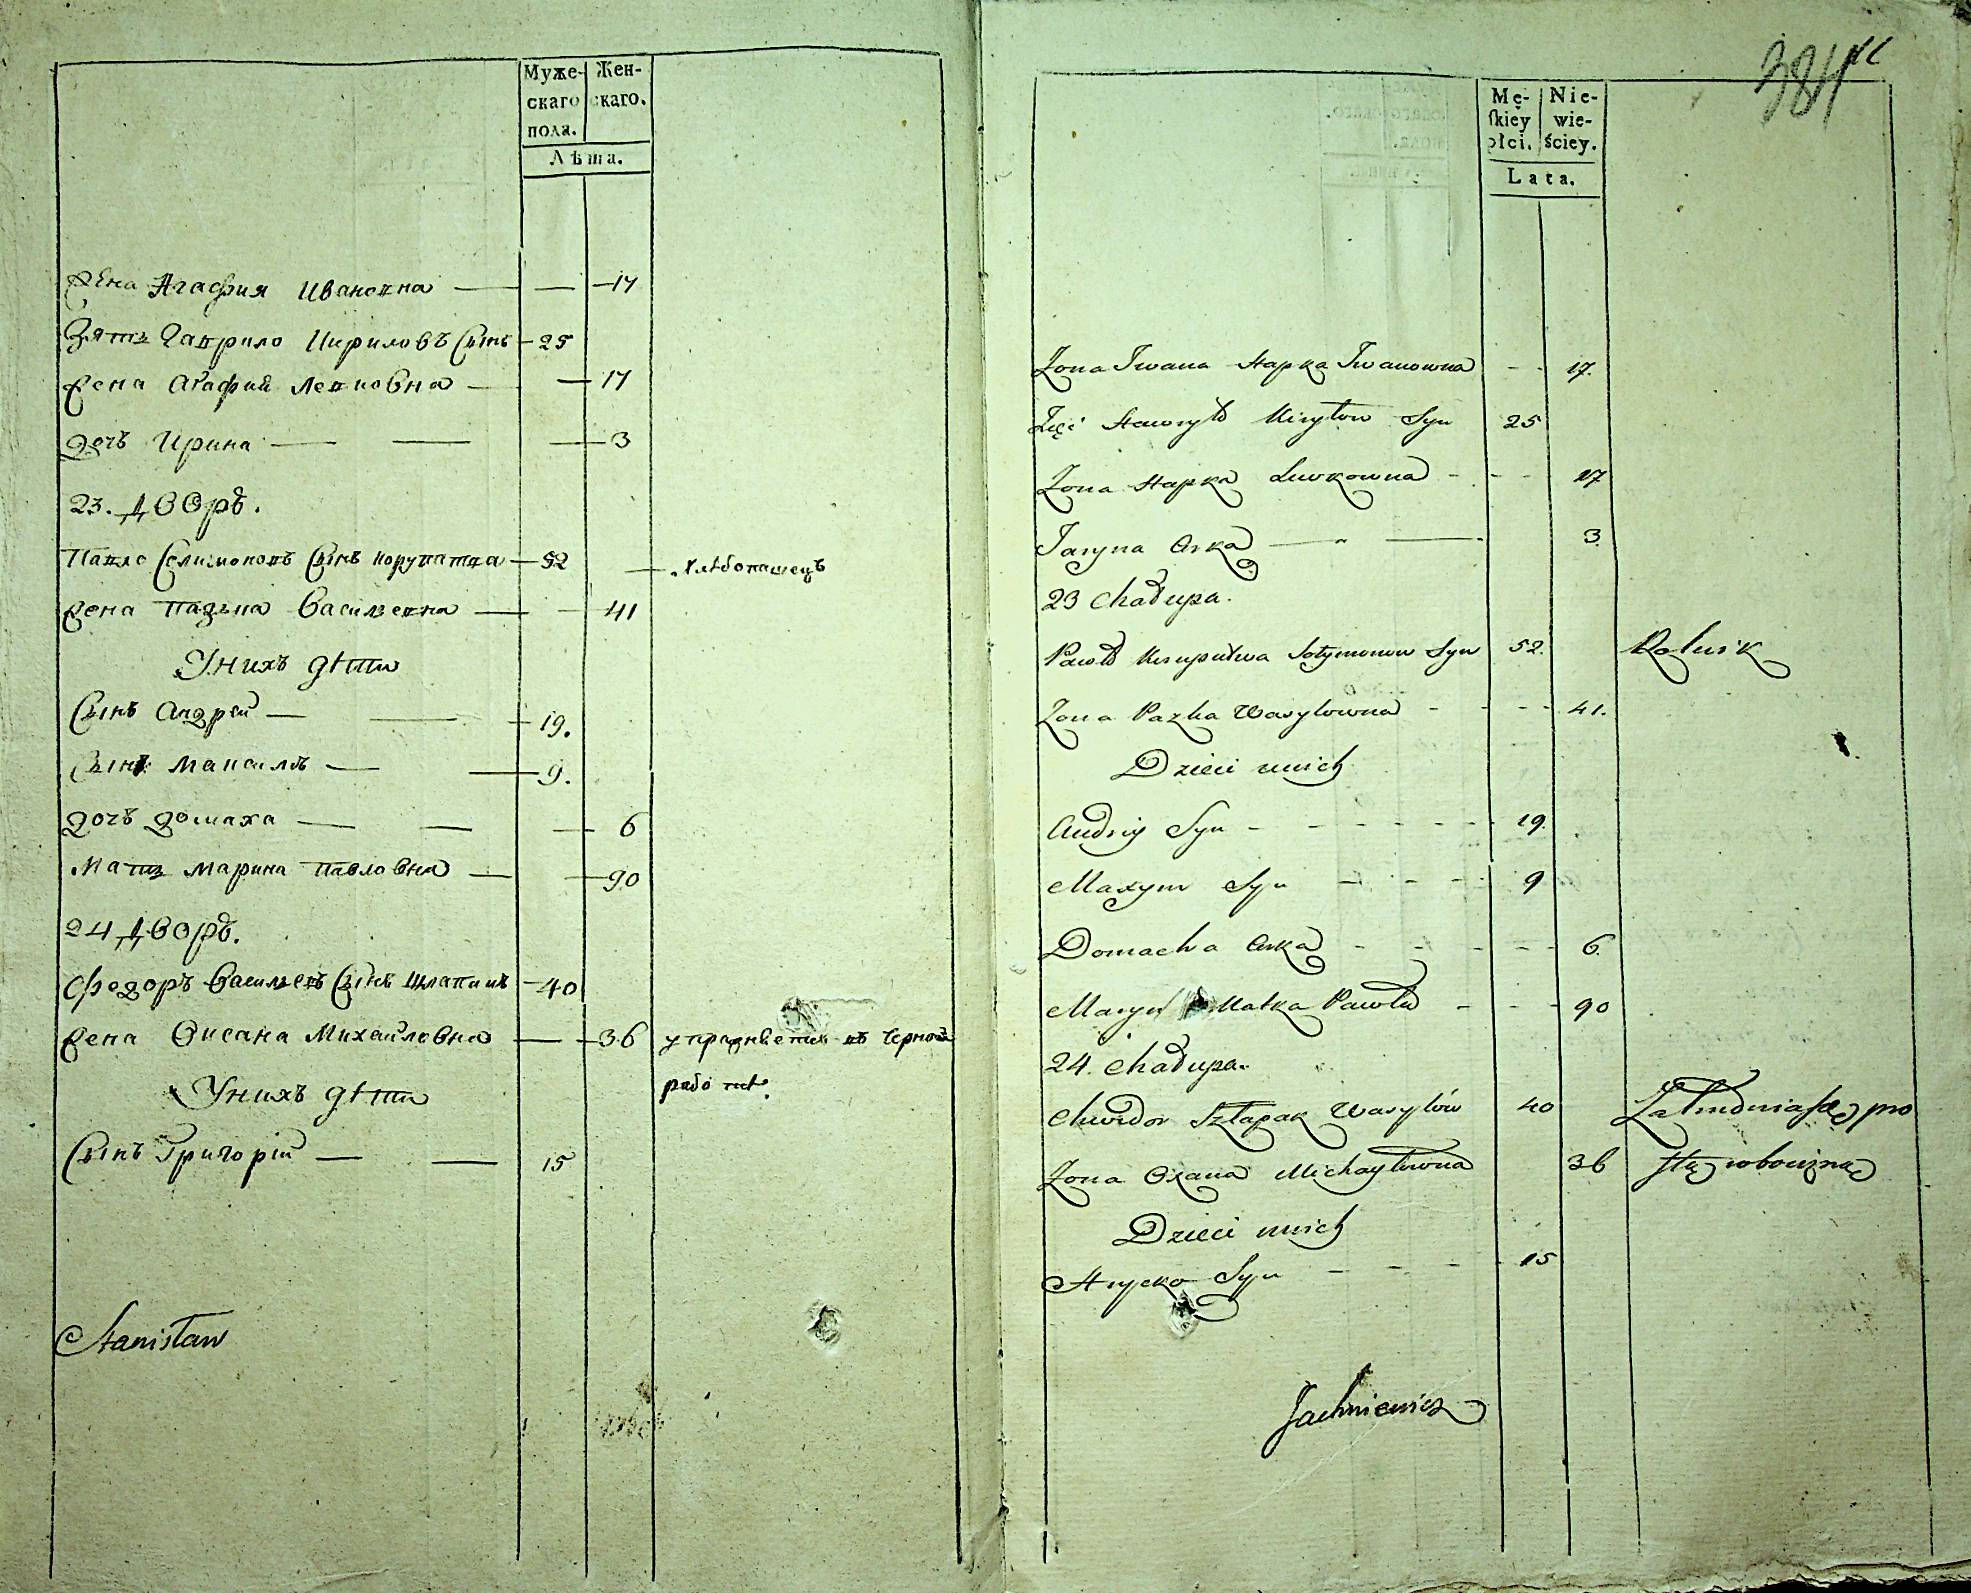 Муже- Жен-
скаго скаго.
пола.
Лѣта.
Жена Агафия Ивановна — — 17
Зять Гаврило Кириловъ Сынъ — 25
Жена Агафия Левковна — — 17
дочъ Ирина — — — 3
23. дворъ.
Павло Селимоновъ Сынъ Корупатва — 52 — Хлѣбопашецъ
Жена Пазька Васильевна — — 41
У нихъ дѣти
Сынъ Андрей — — — 19.
Сынъ Максимъ — — 9.
дочъ домаха — — — 6
Мать Марина Павловна — — 90
24 дворъ.
Федоръ Васильевъ Сынъ Шлапакъ — 40
Жена Оксана Михайловна — — 36 упражняется въ черной
работѣ.
У нихъ дѣти
Сынъ Григорій — — 15
Stanisław
384
Mę- Nie-
skiey wie-
płci. ściey.
Lata.
Zona Iwana Hapka Iwanowna - - 17.
Zięć Hawryło Kiryłow Syn 25
Zona Hapka Lewkowna - - - 17
Jaryna Crka — " — 3
23 Chałupa.
Paweł Kurupatwa Sołymonow Syn 52. Rolnik
Zona Pazka Wasylowna - - - - 41.
Dzieci unich
Andriy Syn - - - - - - 19.
Maxym Syn - - - - 9
Domacha Crka - - - - - 6.
Maryna Matka Pawła - - - 90
24. Chałupa.
Chwedor Szłapak Wasylów 40 Zatrudnia się pro
Zona Oxana Michayłowna 36 stą robocizną
Dzieci unich
Hrycko Syn - - - - 15
Jachniewicz